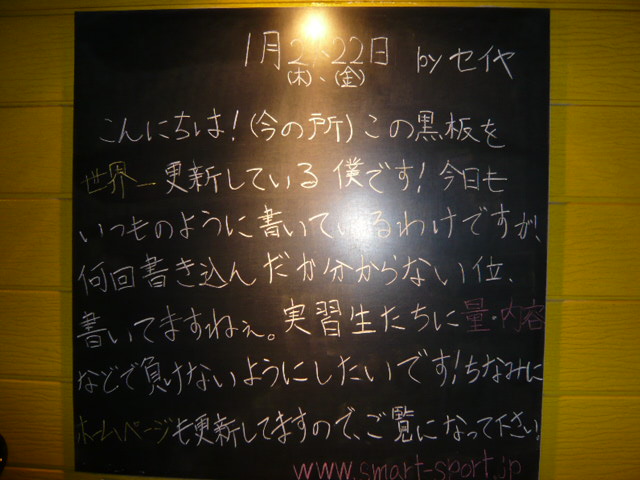 1月21、22日 by セイヤ
(木)、(金)
こんにちは！(今の所)この黒板を
世界一更新している僕です！今日も
いつものように書いているわけですが、
何回書き込んだか分からない位、
書いてますねぇ。実習生たちに量・内容
などで負けないようにしたいです！ちなみに
ホームページも更新してますので、ご覧になって下さい！
www.smart-sport.jp